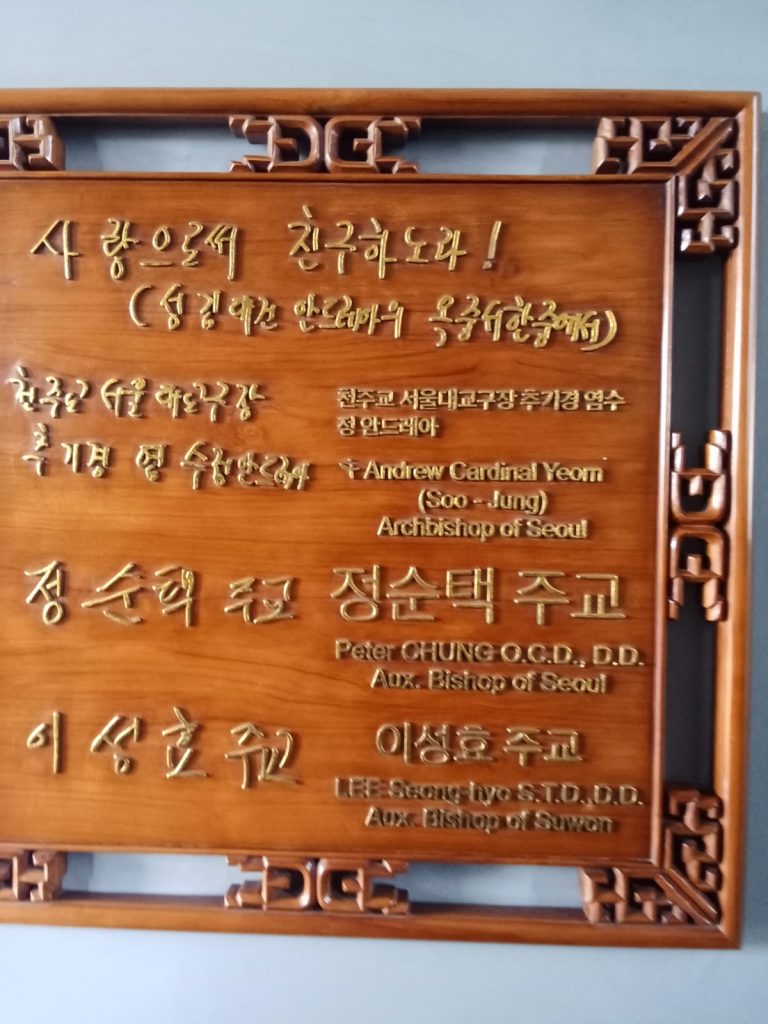 사랑으로써 친구하노라!
(성 김대건 안드레아의 옥중서한중에서)
천주교 서울대교구장
추기경 염수정안드레아
천주교 서울대교구장 추기경 염수
정 안드레아
Andrew Cardinal Yeom
(Soo - Jung)
Archbishop of Seoul
정순택 주교
정순택 주교
Peter CHUNG O.C.D., D.D.
Aux. Bishop of Seoul
이성효주교
이성효 주교
LEE Seong-hyo S.T.D.,D.D.
Aux. Bishop of Suwon